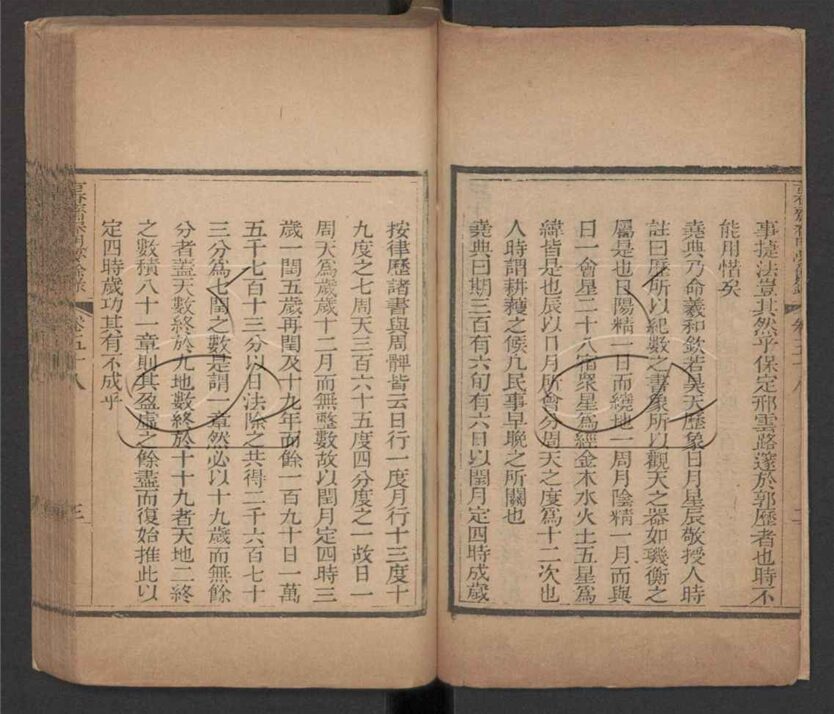 事捷法豈其然乎保定邢雲路邃於郭歷者也時不
能用惜矣
堯典乃命羲和欽若昊天歷象日月星辰敬授人時
註曰歷所以紀數之書象所以觀天之器如璣衡之
屬是也日陽精一日而繞地一周月陰精一月而與
日一會星二十八宿衆星爲經金木水火土五星爲
緯皆是也辰以日月所會分周天之度爲十二次也
人時謂耕穫之候凡民事早晚之所關也
堯典曰期三百有六旬有六日以閏月定四時成歲
按律歷諸書與周髀皆云日行一度月行十三度十
九度之七周天三百六十五度四分度之一故日一
周天爲歲歲十二月而無整數故以閏月定四時三
歲一閏五歲再閏及十九年而餘一百九十日一萬
五千七百十三分以日法除之共得二千六百七十
三分爲七閏之數是謂一章然必以十九歲而無餘
分者蓋天數終於九地數終於十十九者天地二終
之數積八十一章則其盈虛之餘盡而復始推此以
定四時歲功其有不成乎
卷五十八
三